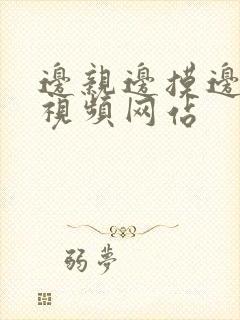 邊親邊摸邊
視頻网佔
弱夢